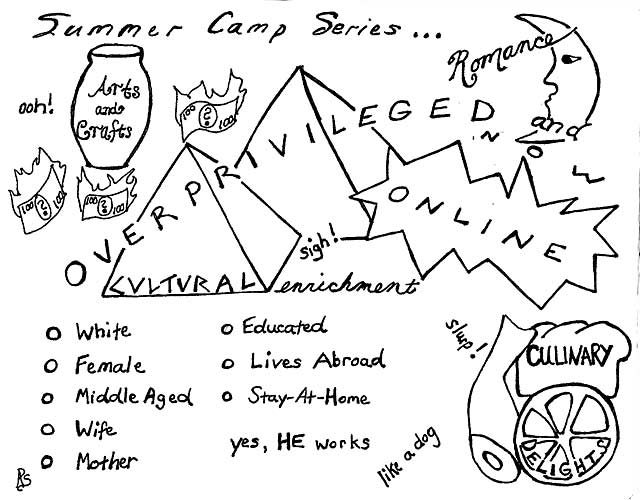 Summer Camp Series...
Romance
and
ooh!
Arts
and
Crafts
100 100
100 100
100 100
OVERPRIVILEGED
ONLINE
sigh!
CULTURAL enrichment
White
Female
Middle Aged
Wife
Mother
Educated
Lives Abroad
Stay-At-Home
yes, HE works
like a dog
slurp!
CULINARY
DELIGHTS